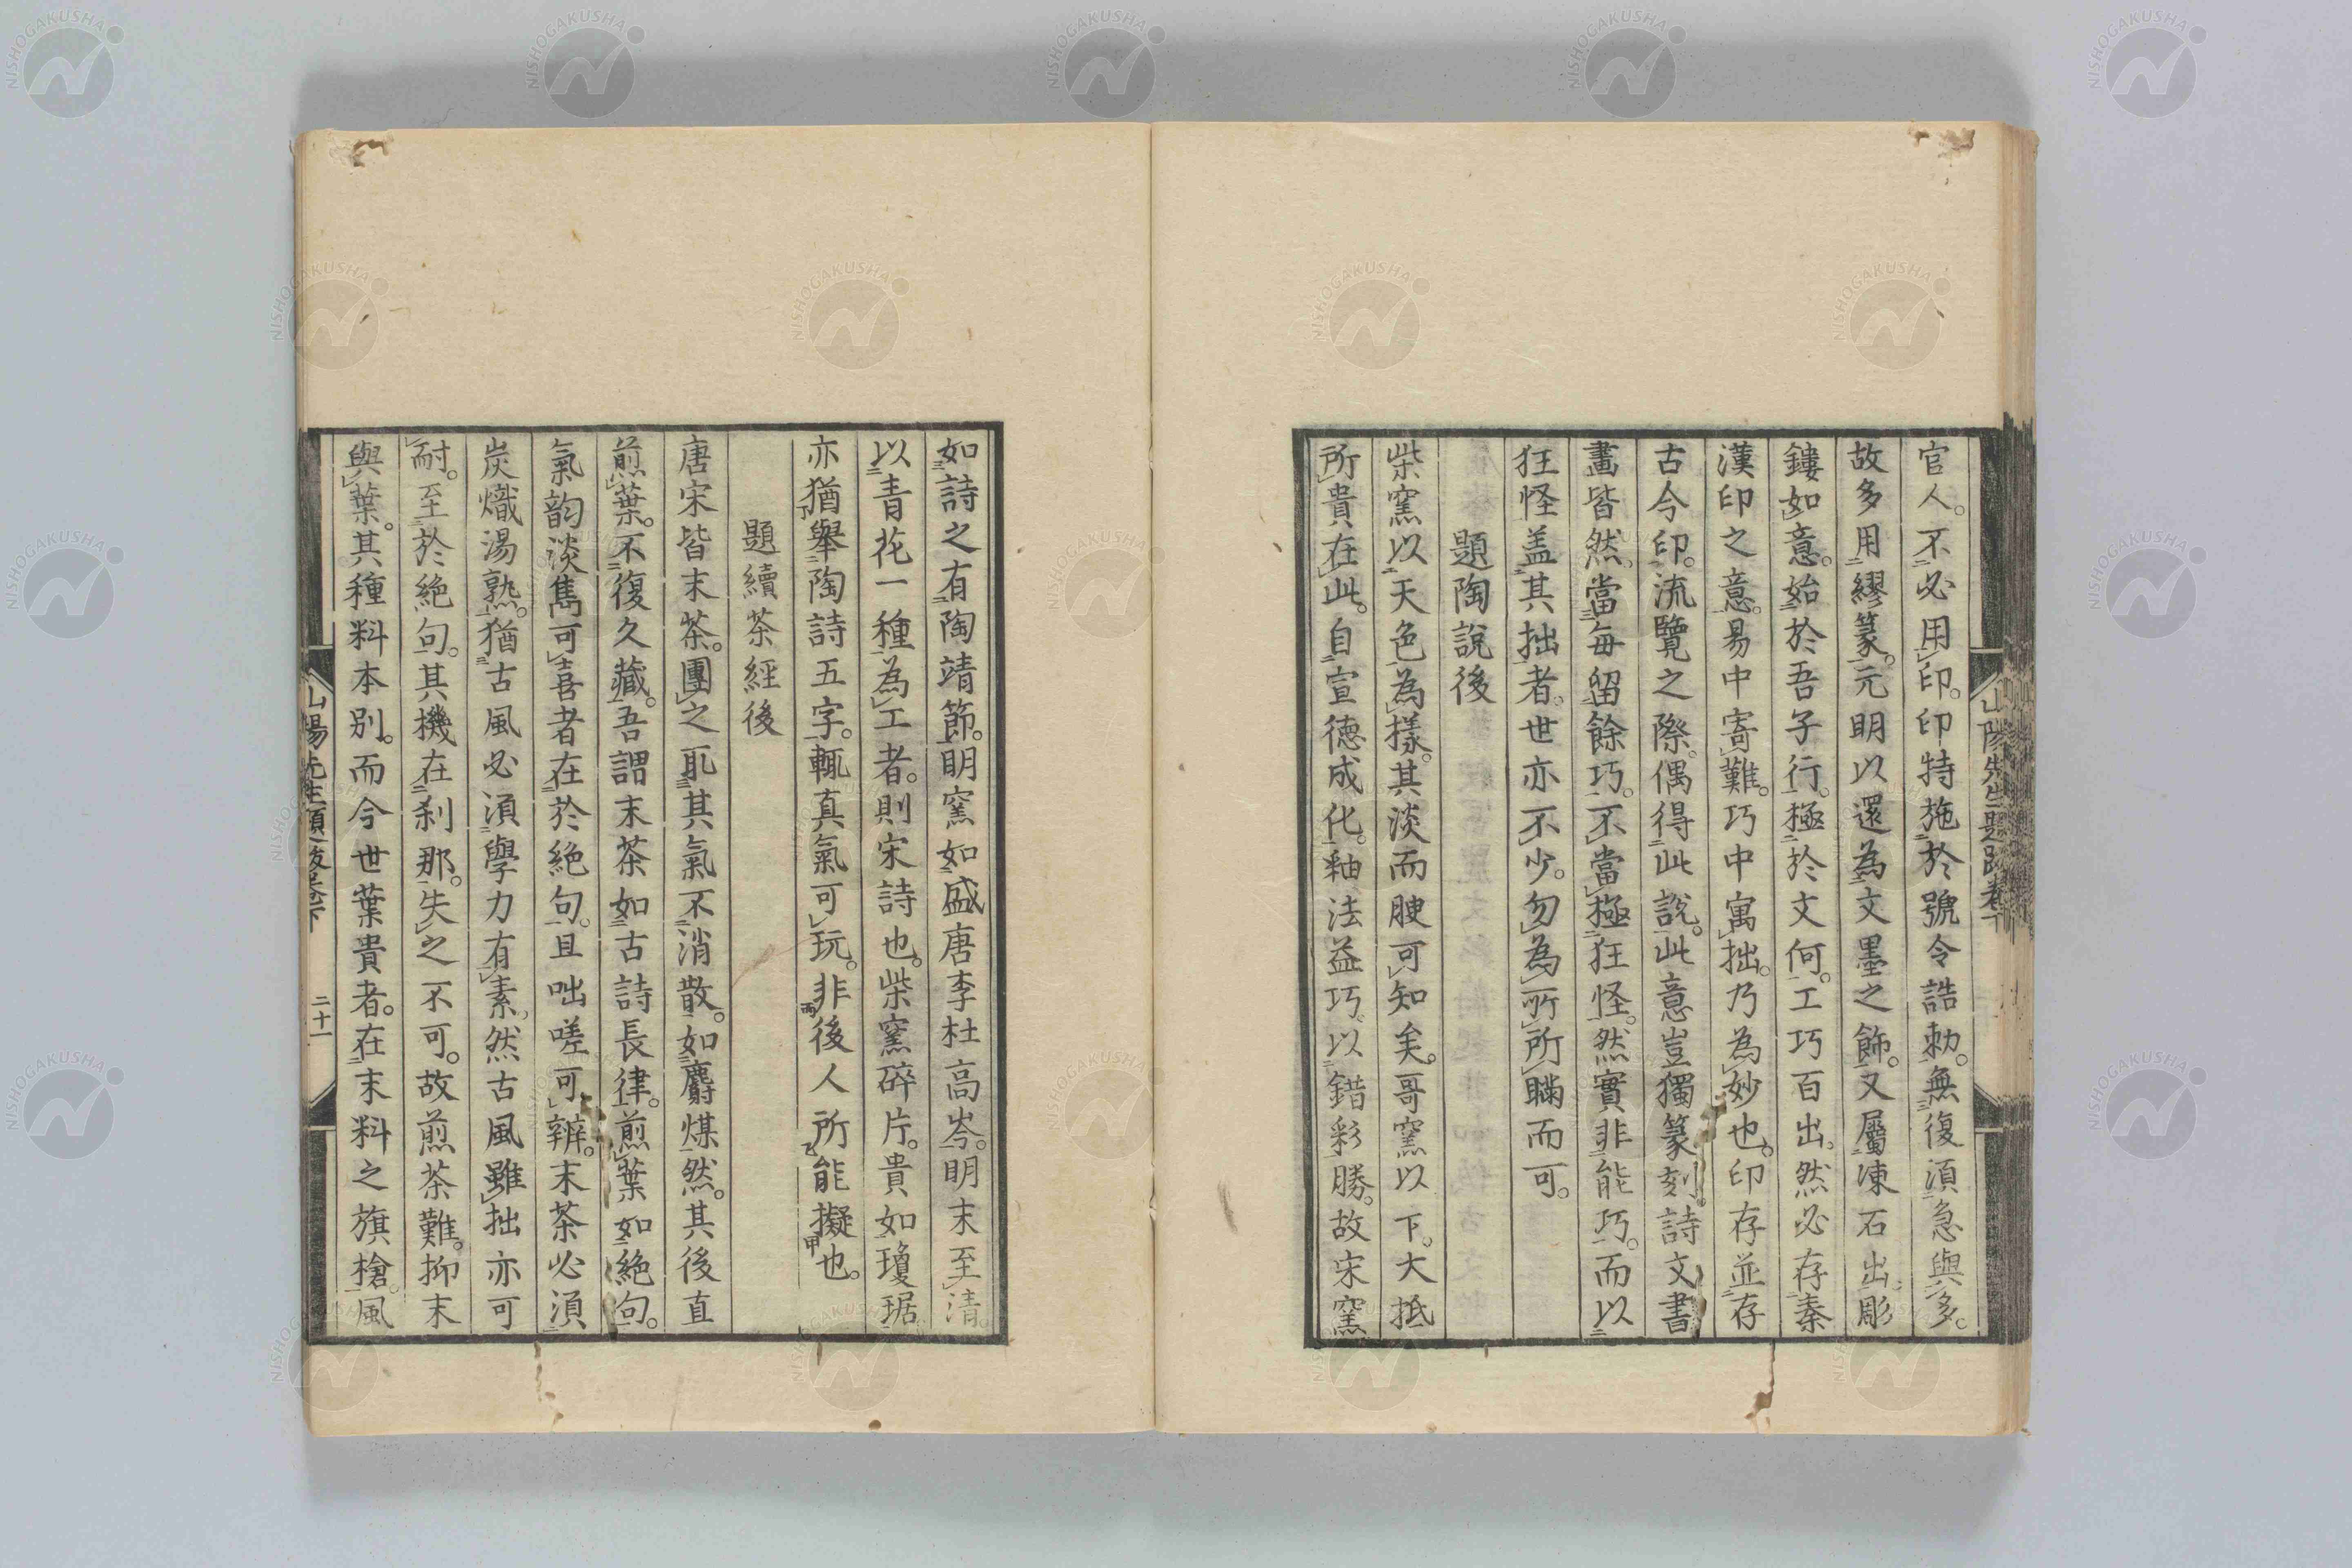 官人。不必用印。印特施於號令誥勅。無復須急與多。
故多用繆篆。元明以還為文墨之飾。又屬凍石出彫
鏤如意。始於吾子行。極於文何。工巧百出。然必存秦
漢印之意。易中寄難。巧中寓拙。乃為妙也。印存並存
古今印。流覽之際。偶得此說。此意豈獨篆刻。詩文書
畫皆然。當每留餘巧。不當極狂怪。然實非能巧。而以
狂怪盖其拙者。世亦不少。勿為所所瞞而可。
題陶說後
柴窯以天色為樣。其淡而腴可知矣。哥窯以下。大抵
所貴在此。自宣德成化。釉法益巧。以錯彩勝。故宋窯
如詩之有陶靖節。明窯如盛唐李杜高岑。明末至清。
以青花一種為工者。則宋詩也。柴窯碎片。貴如瓊琚
亦猶舉陶詩五字。輒真氣可玩。非後人所能擬也。
題續茶經後
唐宋皆末茶。團之取其氣不消散。如麝煤然。其後直
煎葉。不復久藏。吾謂末茶如古詩長律。煎葉如絕句。
氣韵淡雋可喜者在於絕句。且咄嗟可辨。末茶必須
炭熾湯熟。猶古風必須學力有素。然古風雖拙亦可
耐。至於絕句。其機在刹那。失之不可。故煎茶難。抑末
與葉。其種料本別。而今世葉貴者。在末料之旗槍。風
山陽先生題跋卷下
二十一